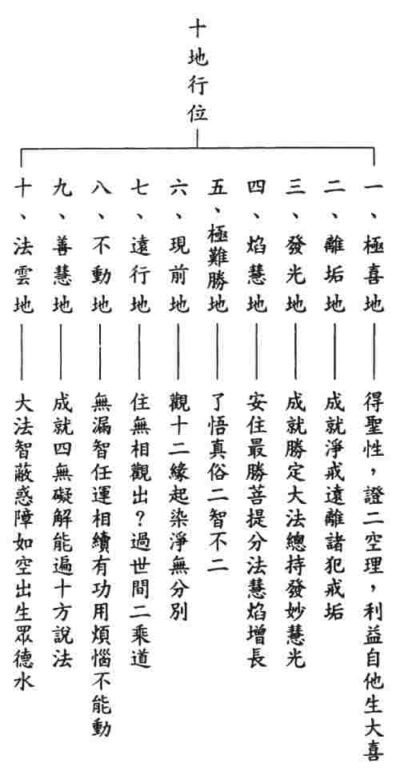 十地行位
一、極喜地——得聖性，證二空理，利益自他生大喜
二、離垢地——成就淨戒遠離諸犯戒垢
三、發光地——成就勝定大法總持發妙慧光
四、焰慧地——安住最勝菩提分法慧焰增長
五、極難勝地——了悟真俗二智不二
六、現前地——觀十二緣起染淨無分別
七、遠行地——住無相觀出？過世間二乘道
八、不動地——無漏智任運相續有功用煩惱不能動
九、善慧地——成就四無礙解能遍十方說法
十、法雲地——大法智蔽惑障如空出生眾德水